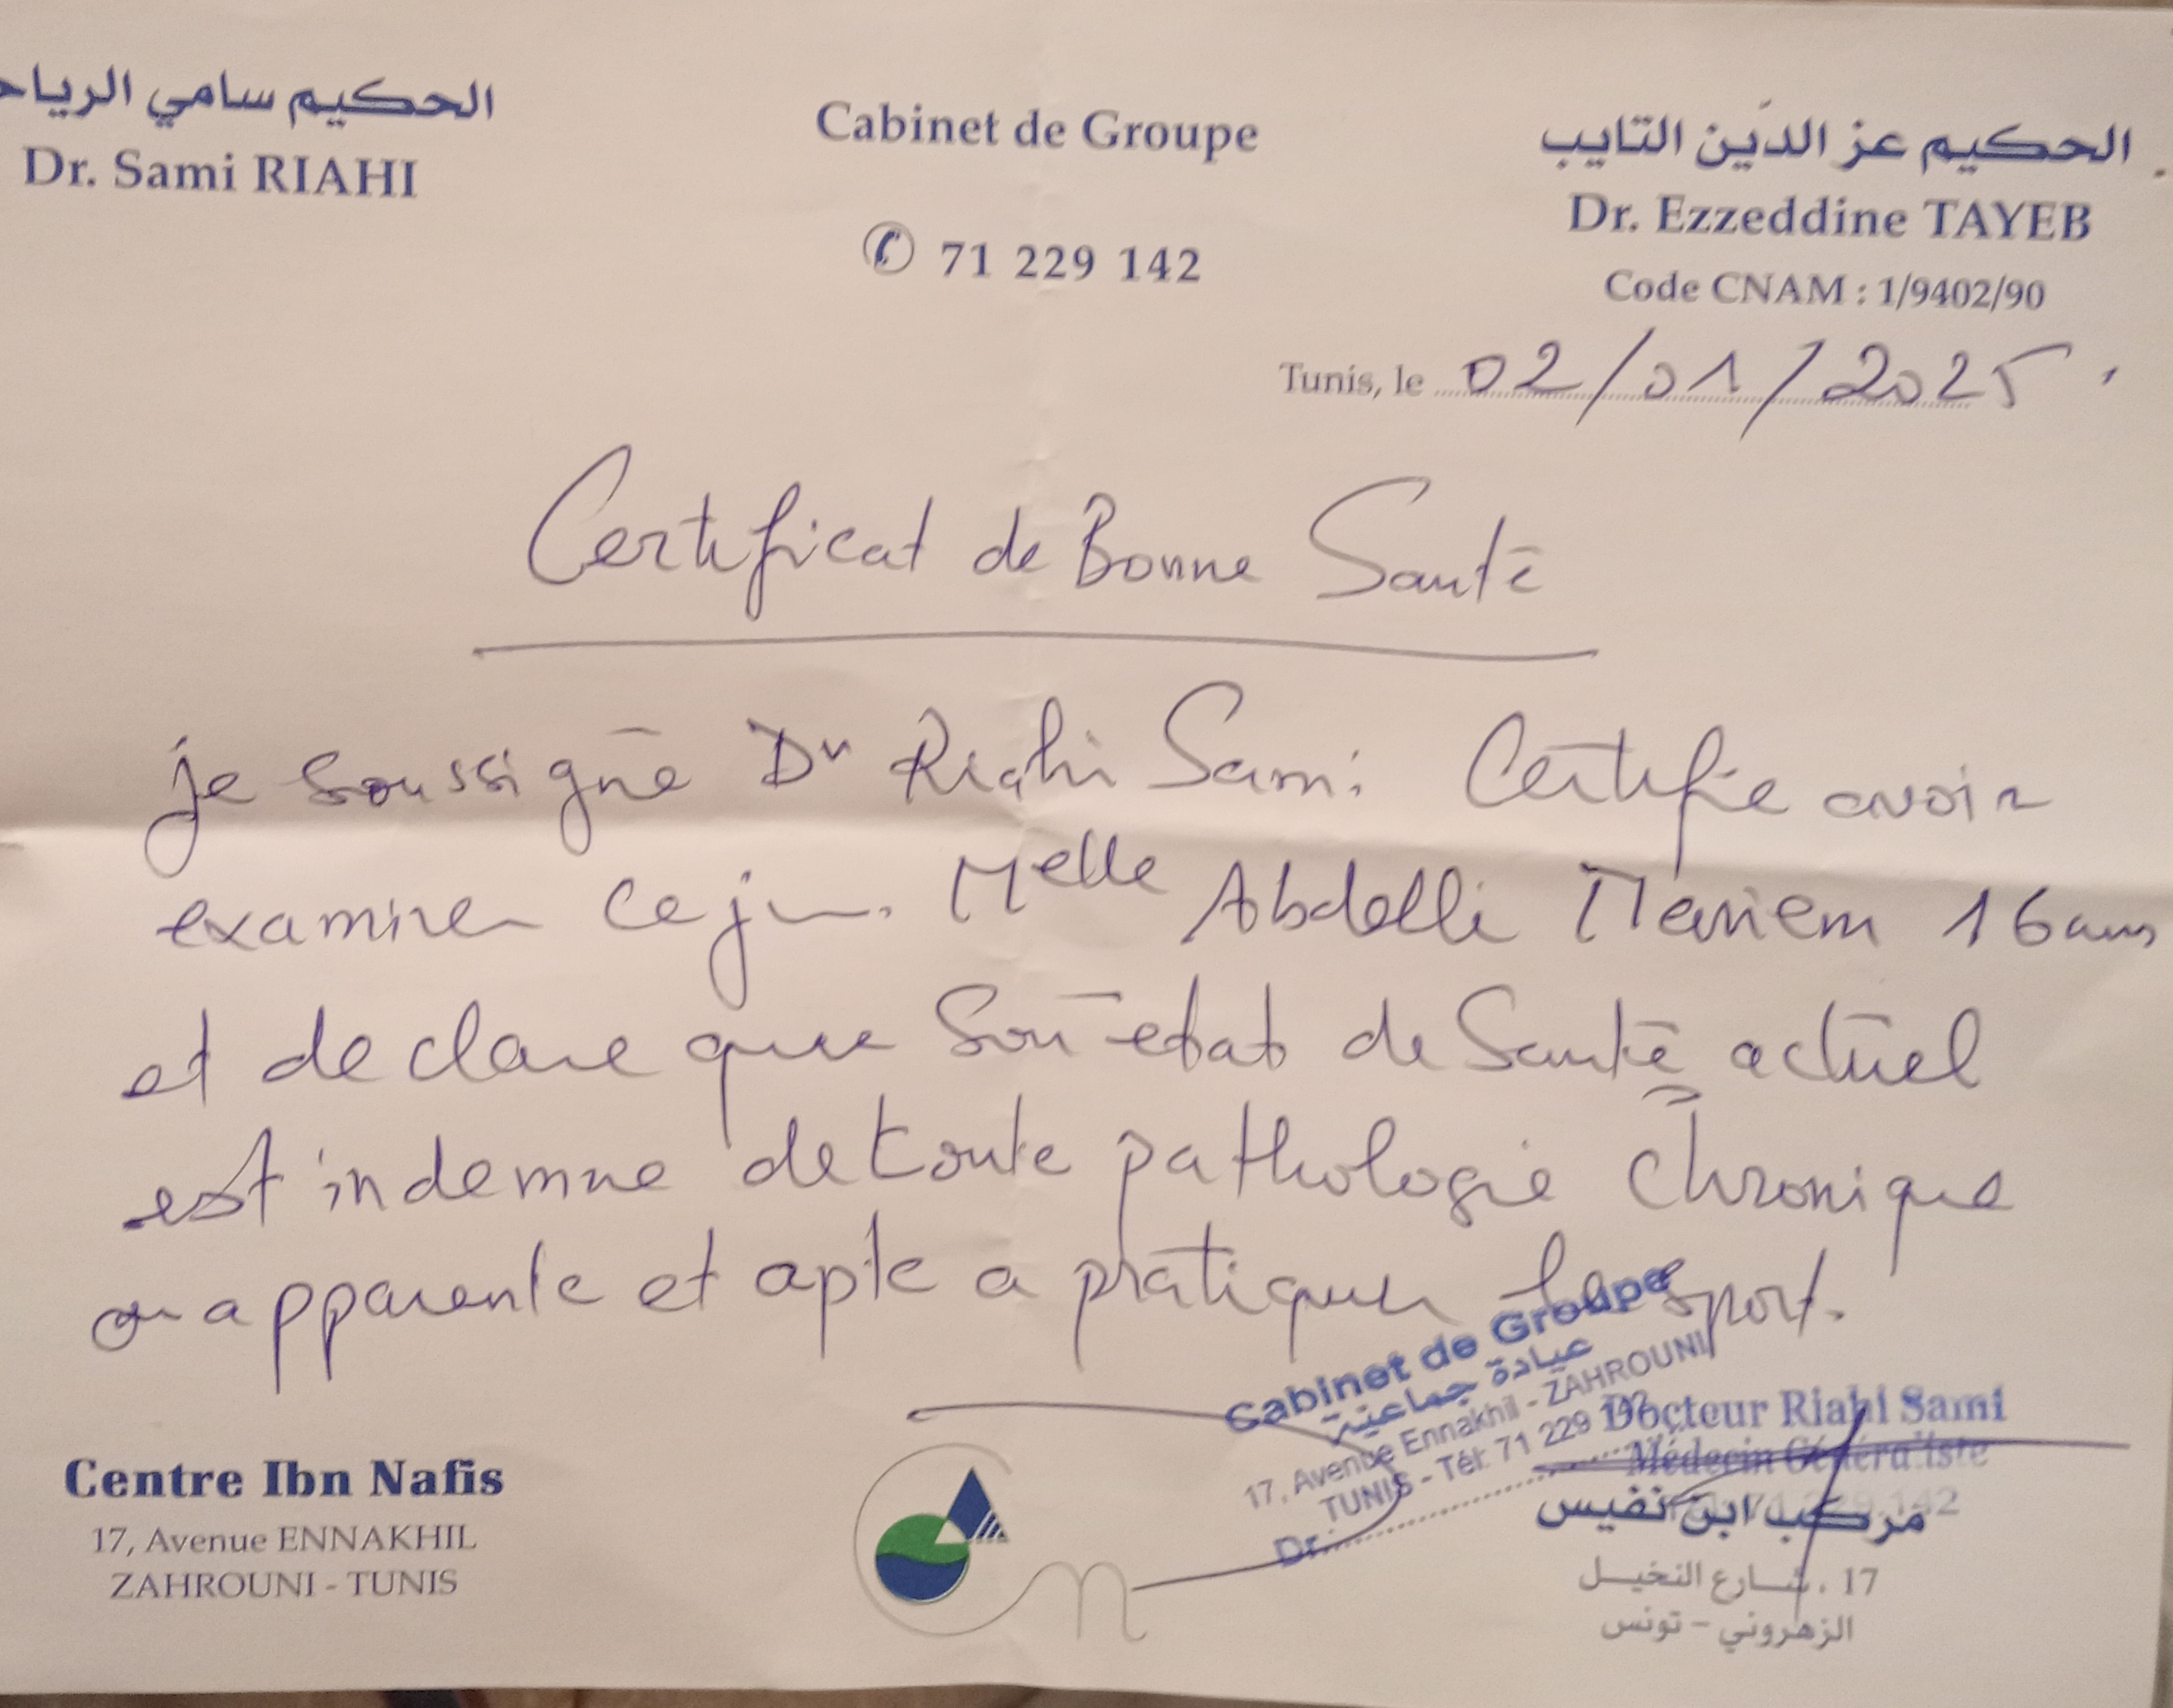 الحكيم سامي الرياح
Dr. Sami RIAHI
Cabinet de Groupe
✆ 71 229 142
الحكيم عز الدّين التّايب
Dr. Ezzeddine TAYEB
Code CNAM : 1/9402/90
Tunis, le 02/01/2025
Certificat de Bonne Santé
je soussigné Dr Riahi Sami Certifie avoir
examiner ce jr. Melle Abdelli Mariem 16 ans
et declare que son état de Santé actuel
est indemne de toute pathologie chronique
ou apparente et apte a pratiquer le sport.
Cabinet de Groupe
عيادة جماعية
17, Avenue Ennakhil - ZAHROUNI
TUNIS - Tél: 71 229 142
Dr.
Docteur Riahi Sami
Médecin Généraliste
71 229 142
Centre Ibn Nafis
17, Avenue ENNAKHIL
ZAHROUNI - TUNIS
مركب ابن نفيس
17 ، شارع النخيل
الزهروني - تونس